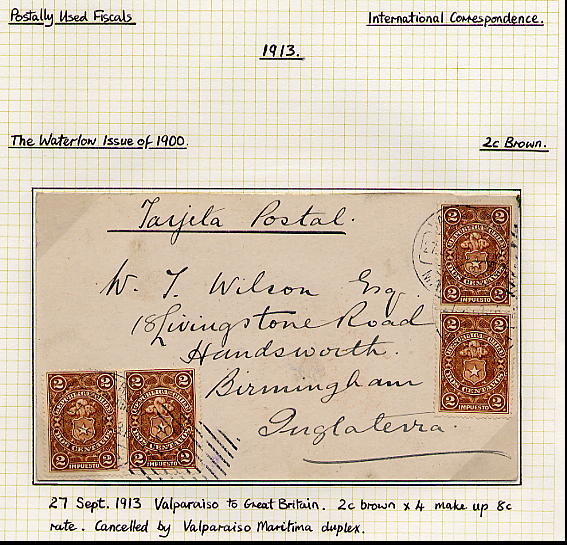 Postally Used Fiscals
International Correspondence.
1913.
The Waterlow Issue of 1900.
2c Brown.
Tarjeta Postal.
W. J. Wilson Esq.
18 Livingstone Road
Handsworth.
Birmingham
Inglaterra.
2 2
DOS CENTAVOS
2 IMPUESTO 2
2 2
DOS CENTAVOS
2 IMPUESTO 2
2 2
DOS CENTAVOS
2 IMPUESTO 2
2 2
DOS CENTAVOS
2 IMPUESTO 2
27 Sept. 1913 Valparaiso to Great Britain. 2c brown x 4 make up 8c
rate. Cancelled by Valparaiso Maritima duplex.